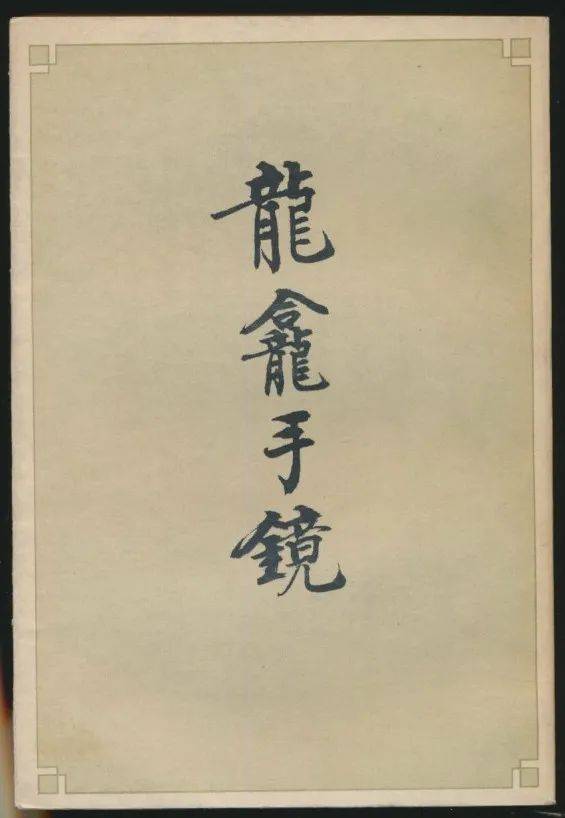 龍龕手鏡